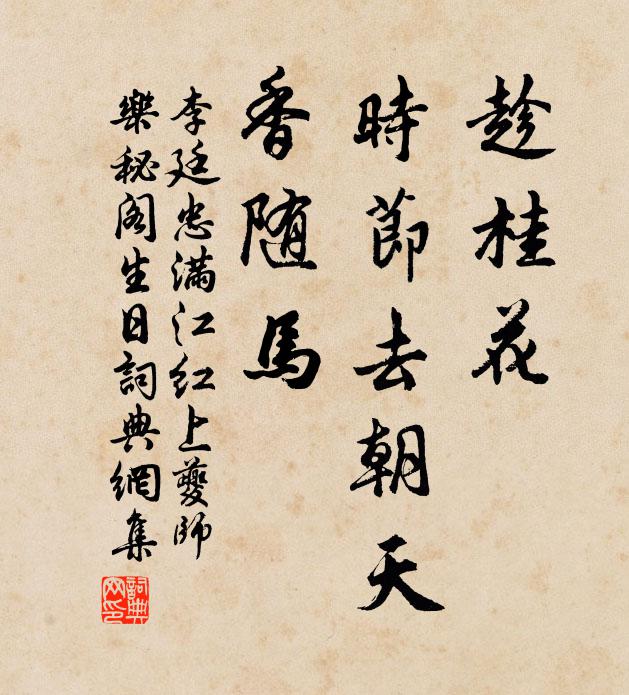 趁桂花
時節去朝天
香随馬
李廷忠滿江紅上夔師
樂秘阁生日詞典網集
詞典
网印